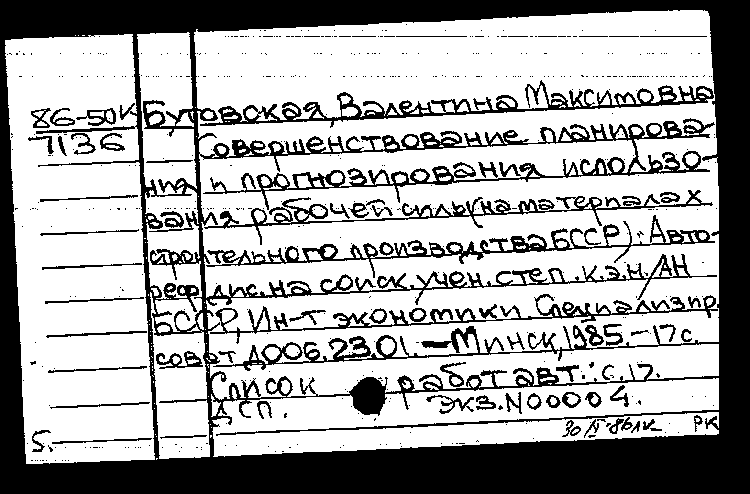 86-50к Бутовская, Валентина Максимовна
7136 Совершенствование планирова-
ния и прогнозирования использо-
вания рабочей силы (на материалах
строительного производства БССР): Авто-
реф. дис. на соиск. учен. степ. к.э.н./АН
БССР, Ин-т экономики. Специализир.
совет Д006.23.01. — Минск, 1985. - 17 с.
Список работ авт.: с.17.
ДСП. Экз. N00004.
5. РК